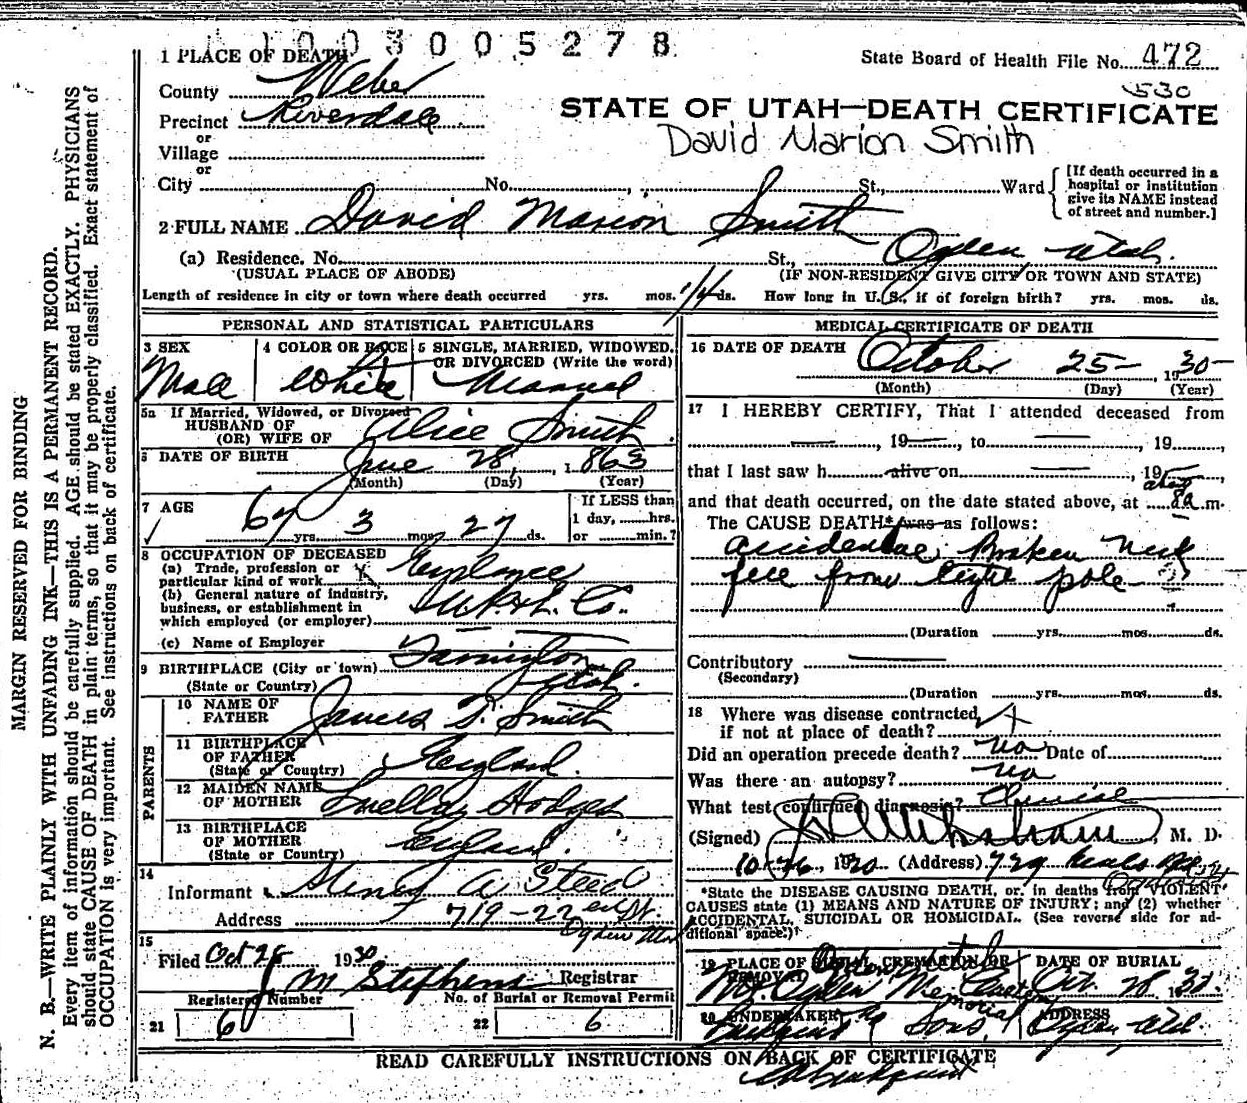 1003005278
1 PLACE OF DEATH
State Board of Health File No. 472
530
County Weber
STATE OF UTAH—DEATH CERTIFICATE
Precinct Riverdale
David Marion Smith
or
Village
or
City No. St., Ward
[If death occurred in a
hospital or institution
give its NAME instead
of street and number.]
2 FULL NAME David Marion Smith
(a) Residence. No. St., Ogden, Utah.
(USUAL PLACE OF ABODE) (IF NON-RESIDENT GIVE CITY OR TOWN AND STATE)
Length of residence in city or town where death occurred yrs. mos. ds. How long in U. S., if of foreign birth? yrs. mos. ds.
PERSONAL AND STATISTICAL PARTICULARS
3 SEX Male
4 COLOR OR RACE White
5 SINGLE, MARRIED, WIDOWED,
OR DIVORCED (Write the word)
Married
5a If Married, Widowed, or Divorced
HUSBAND OF
(OR) WIFE OF Alice Smith
6 DATE OF BIRTH June 28, 1863
(Month) (Day) (Year)
7 AGE 67 yrs. 3 mos. 27 ds.
If LESS than
1 day, hrs.
or min.?
8 OCCUPATION OF DECEASED
(a) Trade, profession or
particular kind of work Employee
(b) General nature of industry,
business, or establishment in
which employed (or employer) U.P.&L. Co.
(c) Name of Employer
9 BIRTHPLACE (City or town) Farmington
(State or Country) Utah.
PARENTS
10 NAME OF
FATHER James S. Smith
11 BIRTHPLACE
OF FATHER
(State or Country) England.
12 MAIDEN NAME
OF MOTHER Luella Hodges
13 BIRTHPLACE
OF MOTHER
(State or Country) England.
14
Informant Henry A Steed
Address 719-22nd St.
Ogden Utah
15
Filed Oct 28 1930
J M Stephens Registrar
Registered Number
No. of Burial or Removal Permit
21 6
22 6
MEDICAL CERTIFICATE OF DEATH
16 DATE OF DEATH October 25- 1930-
(Month) (Day) (Year)
17 I HEREBY CERTIFY, That I attended deceased from
, 19 , to 19 ,
that I last saw h alive on , 19
about
and that death occurred, on the date stated above, at 8a m.
The CAUSE DEATH* was as follows:
accidental Broken neck
fell from light pole
(Duration yrs. mos. ds.
Contributory
(Secondary)
(Duration yrs. mos. ds.
18 Where was disease contracted
if not at place of death?
Did an operation precede death? no Date of
Was there an autopsy? no
What test confirmed diagnosis?
(Signed) , M. D.
10-26, 1930 (Address) 729
*State the DISEASE CAUSING DEATH, or, in deaths from VIOLENT
CAUSES state (1) MEANS AND NATURE OF INJURY; and (2) whether
ACCIDENTAL, SUICIDAL OR HOMICIDAL. (See reverse side for ad-
ditional space.)
19 PLACE OF BURIAL, CREMATION OR
REMOVAL
DATE OF BURIAL
Oct. 28 1930.
20 UNDERTAKER
& Sons,
ADDRESS
Ogden, Utah.
READ CAREFULLY INSTRUCTIONS ON BACK OF CERTIFICATE
MARGIN RESERVED FOR BINDING
N. B.—WRITE PLAINLY WITH UNFADING INK—THIS IS A PERMANENT RECORD.
Every item of information should be carefully supplied. AGE should be stated EXACTLY. PHYSICIANS
should state CAUSE OF DEATH in plain terms, so that it may be properly classified. Exact statement of
OCCUPATION is very important. See instructions on back of certificate.